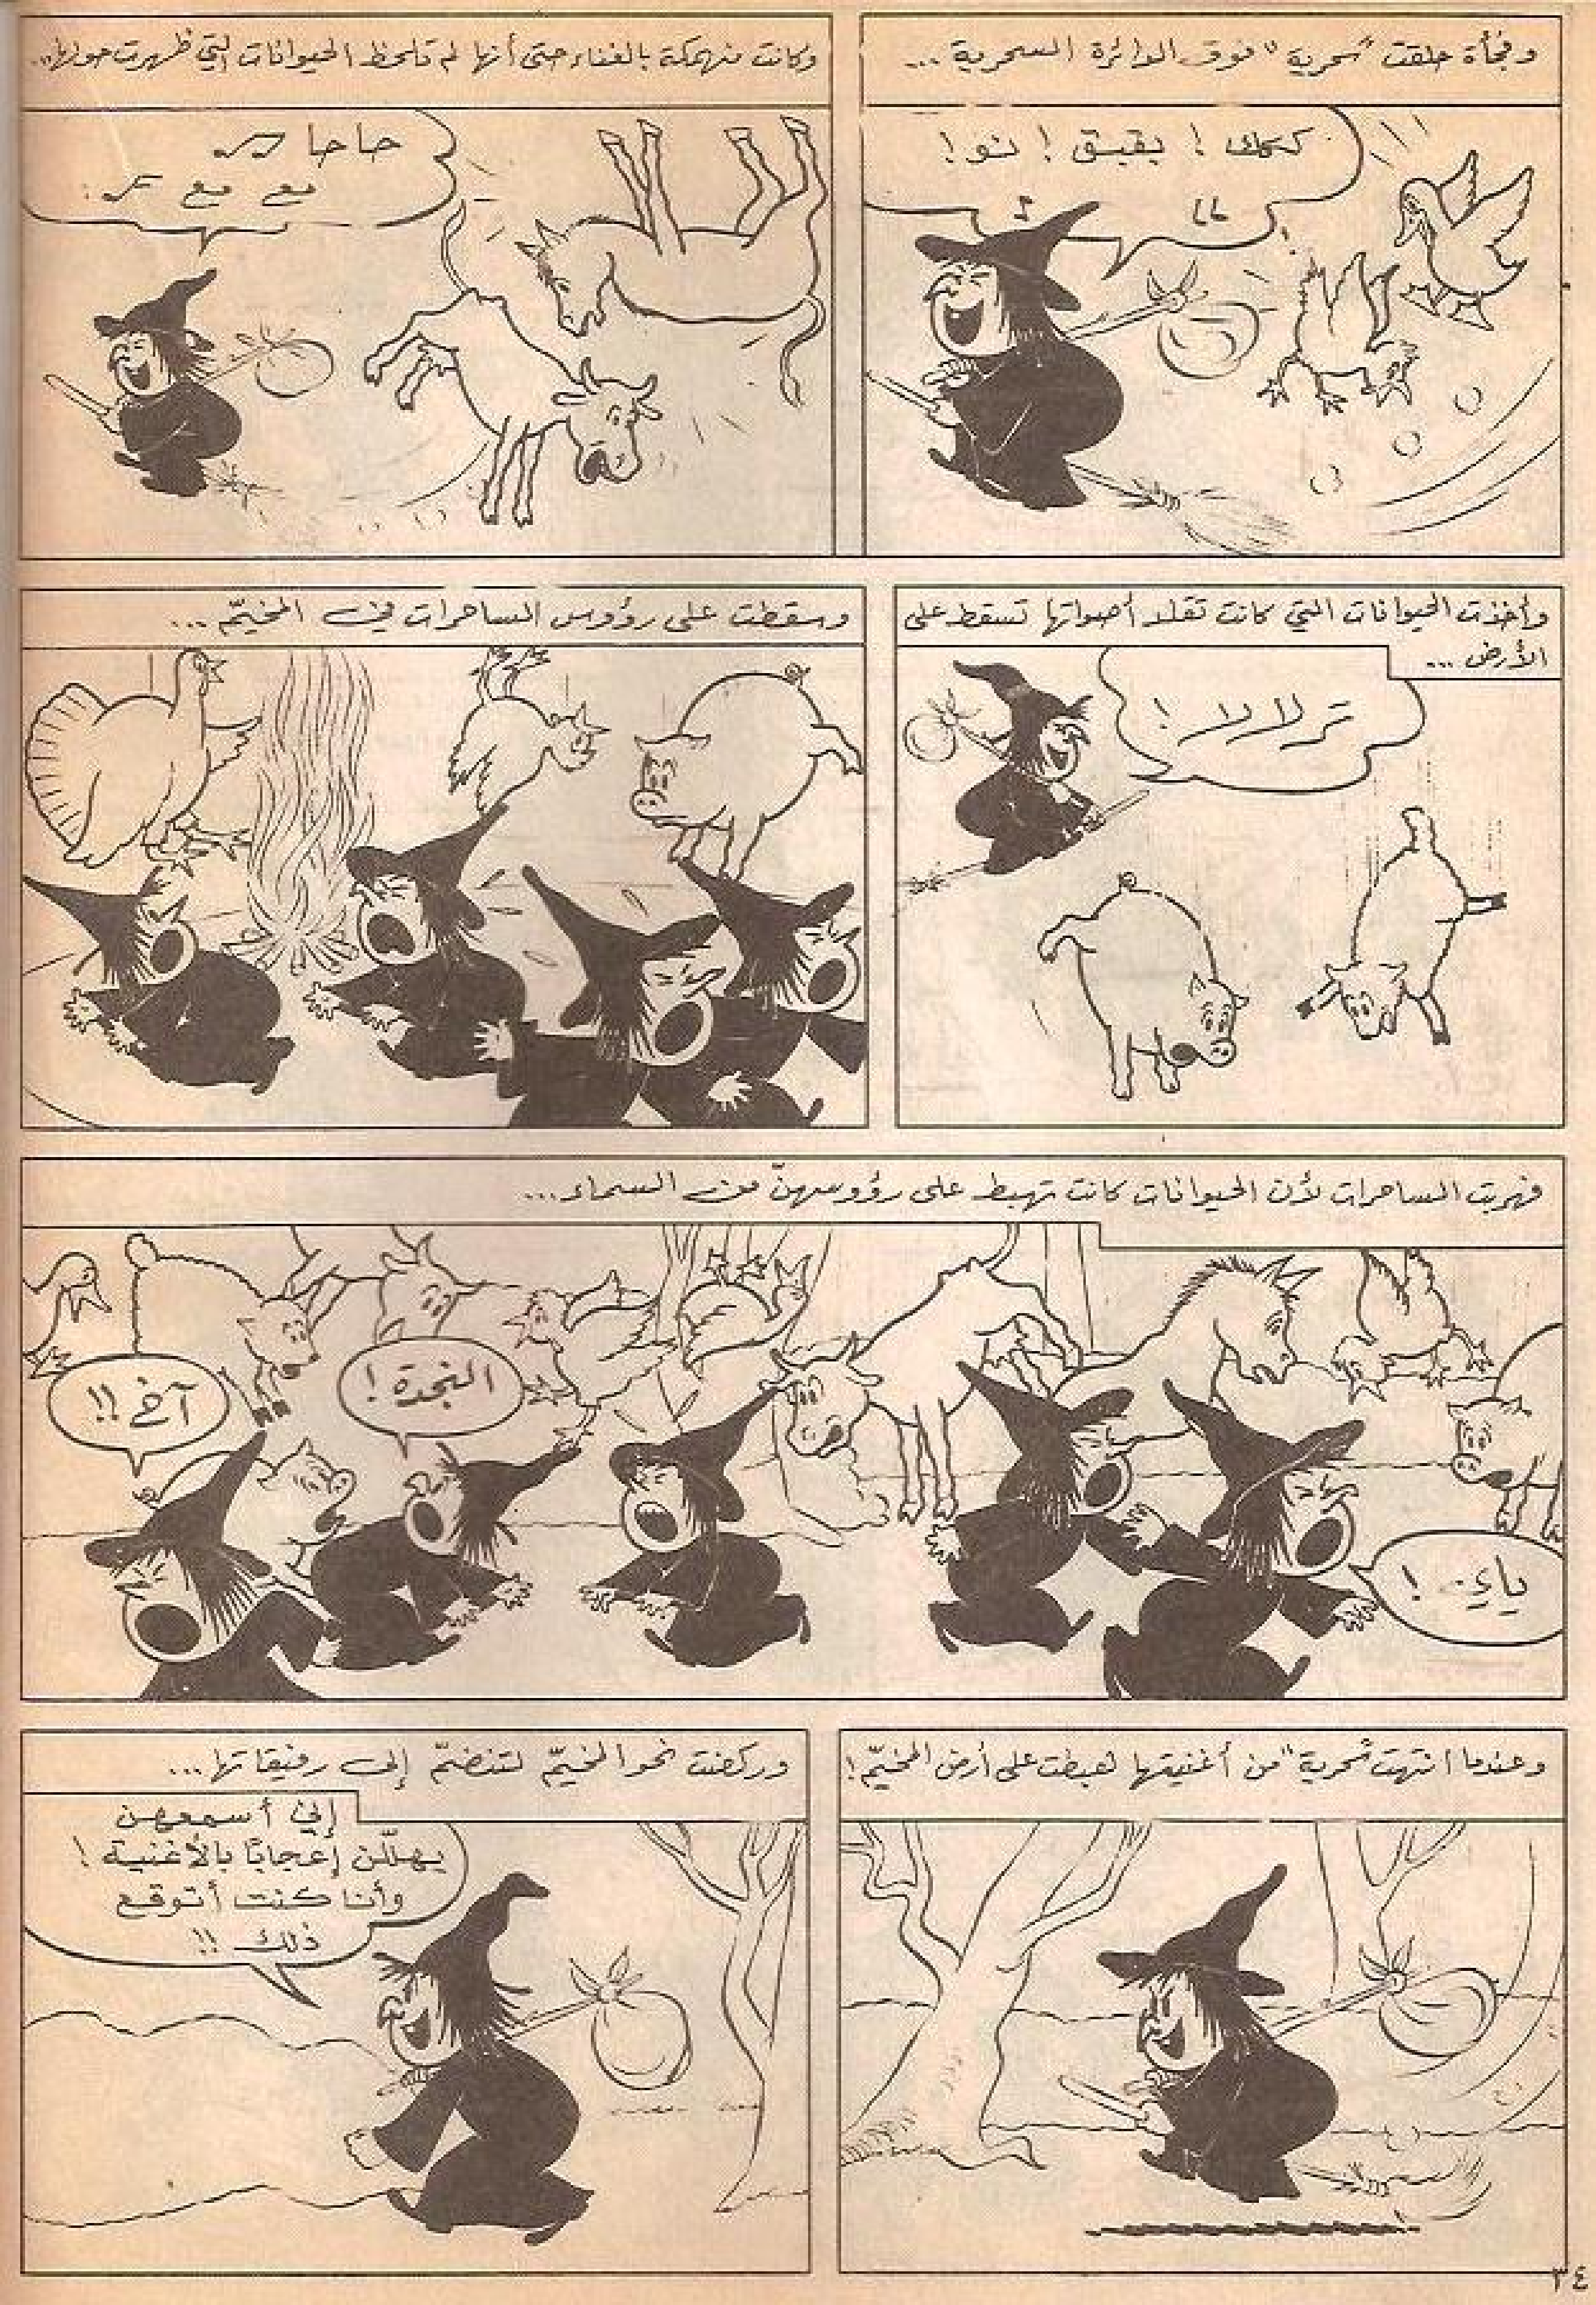 وفجأة حلقت "سحرية" فوق الدائرة السحرية ...
ككك ! بقبق ! نو !
وكانت منهمكة بالغناء حتى أنها لم تلحظ الحيوانات التي ظهرت حولها..
حاحا
مع مع
وأخذت الحيوانات التي كانت تقلد أصواتها تسقط على
الأرض ...
ترلالا !
وسقطت على رؤوس الساحرات في المخيّم ...
فهربت الساحرات لأن الحيوانات كانت تهبط على رؤوسهنّ من السماء ...
ياي !
النجدة !
آخ !!
وعندما انتهت "سحرية" من أغنيتها هبطت على أرض المخيّم !
وركضت نحو المخيّم لتنضمّ إلى رفيقاتها ...
إني أسمعهن
يهلّلن إعجابًا بالأغنية !
وأنا كنت أتوقع
ذلك !!
٣٤